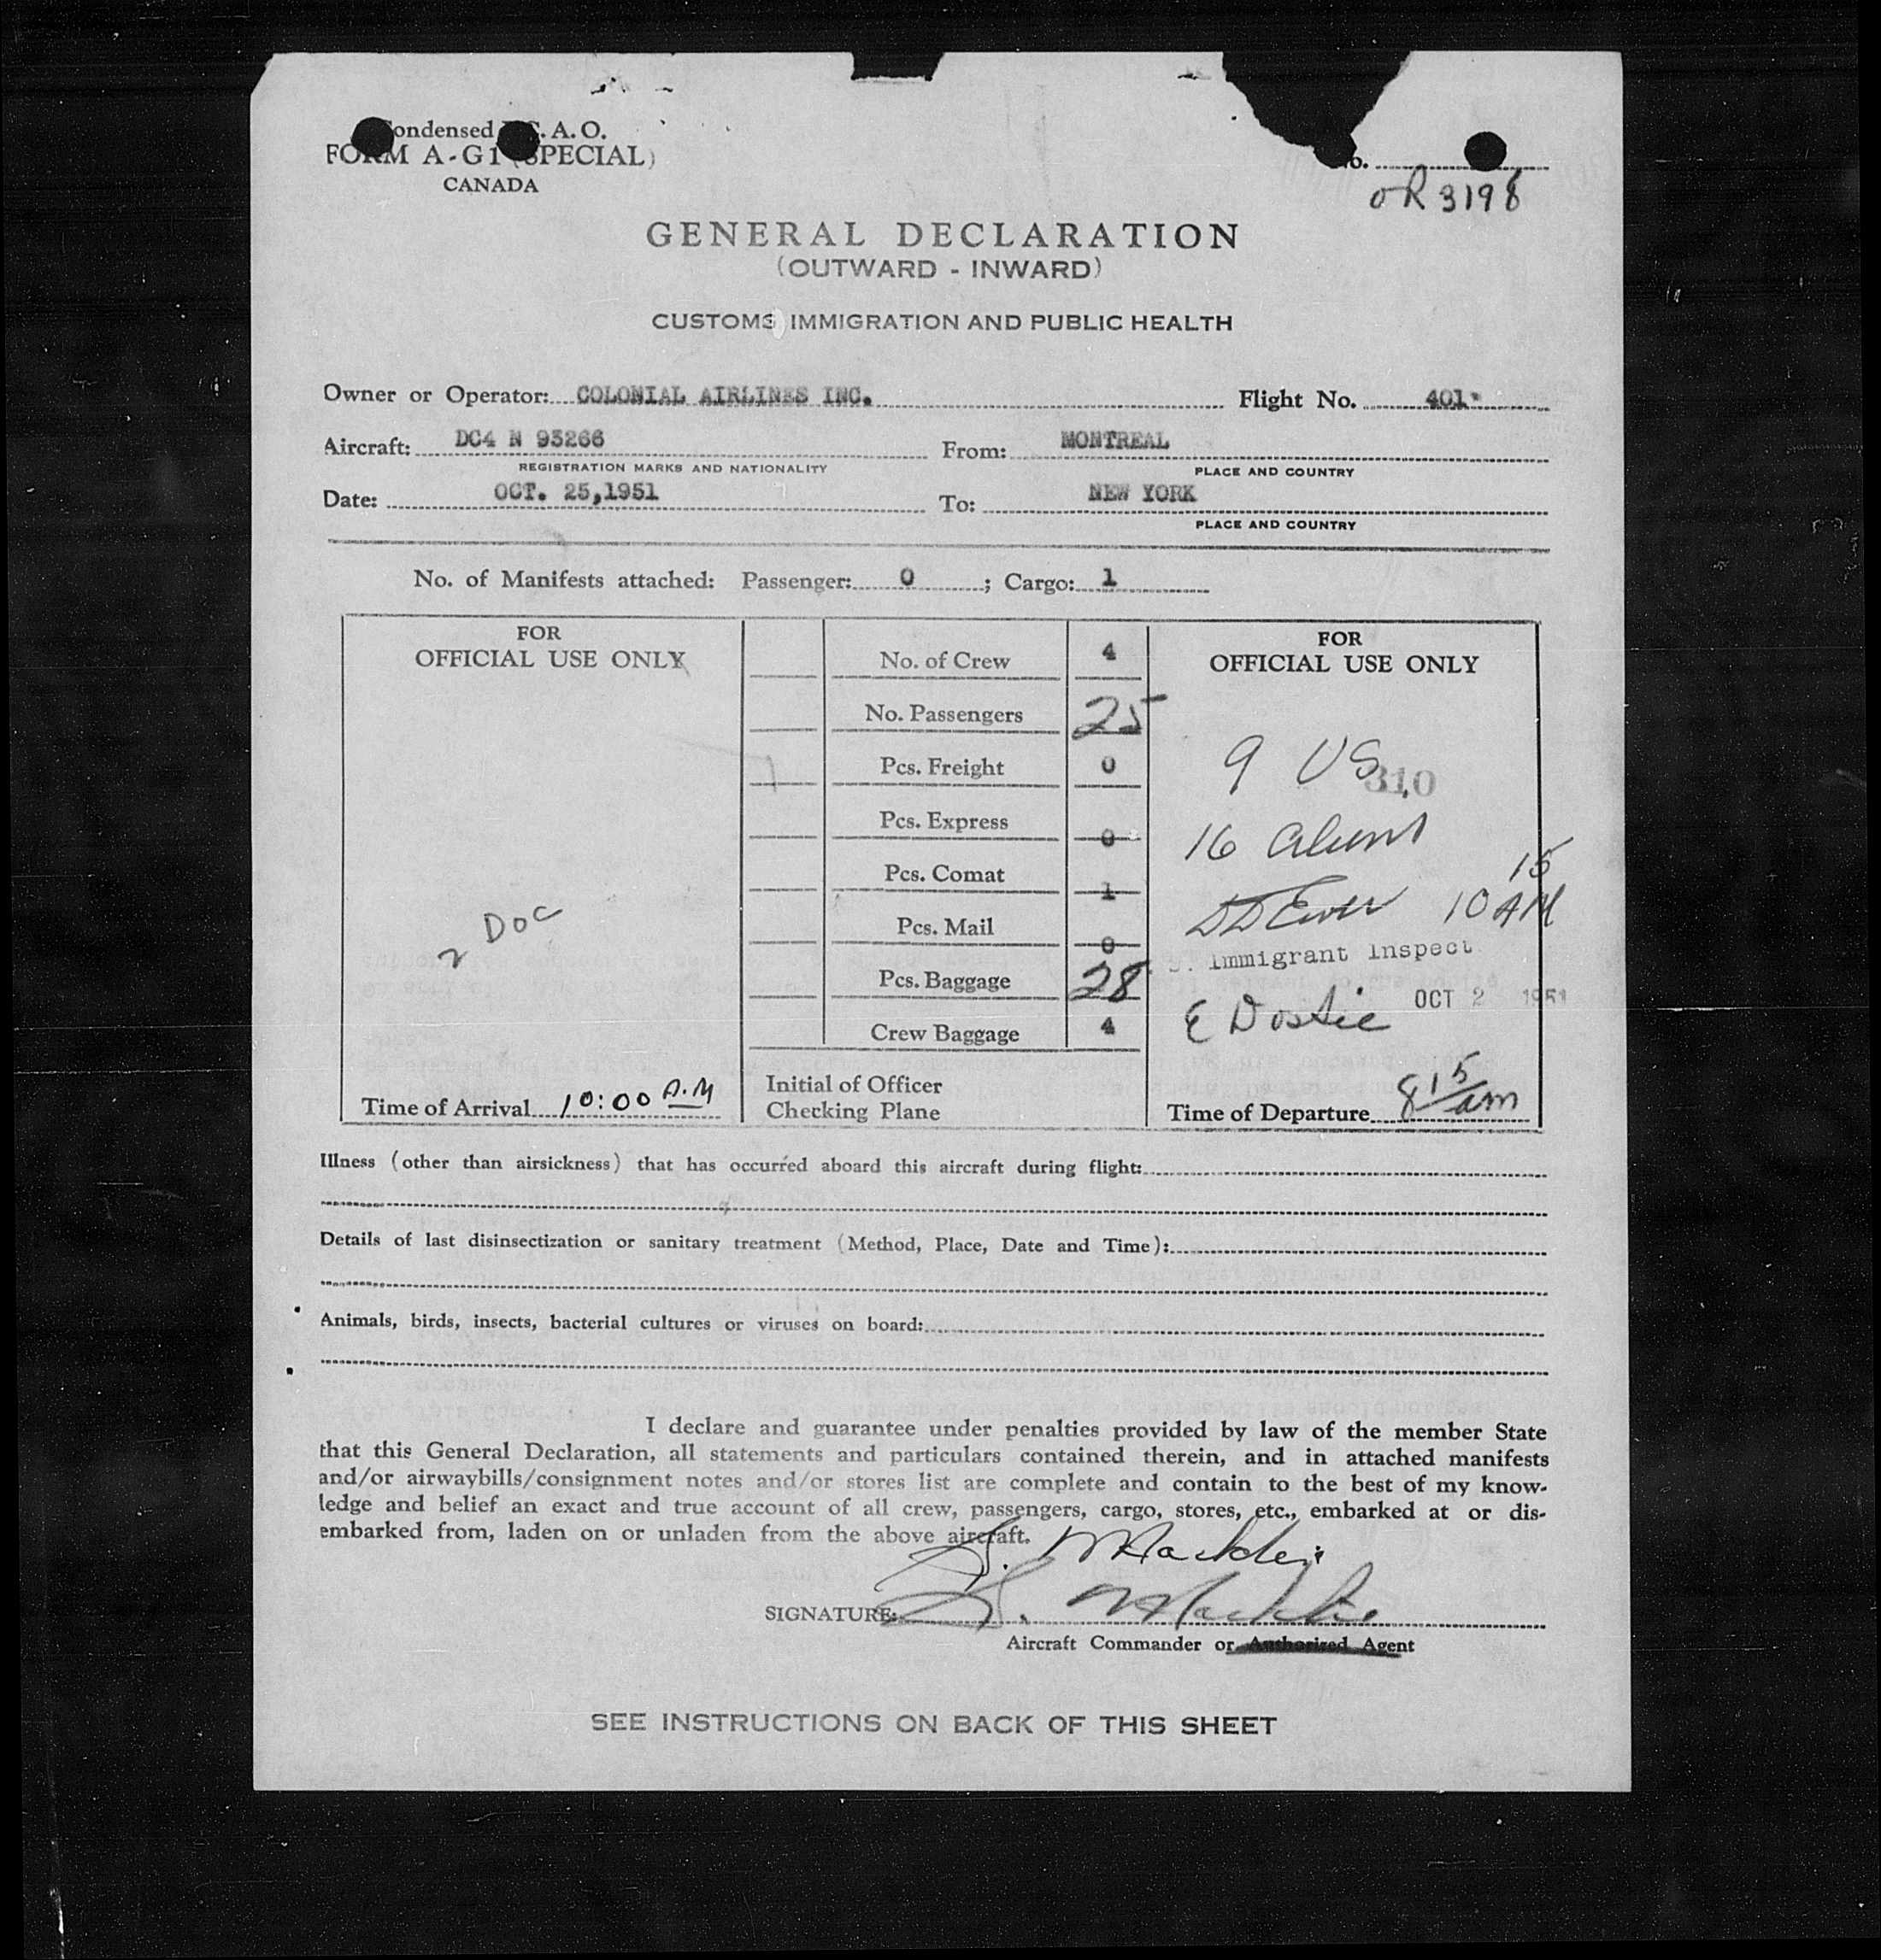 Condensed I.C.A.O.
FORM A-G1 (SPECIAL)
CANADA
No.
OR 3198
GENERAL DECLARATION
(OUTWARD - INWARD)
CUSTOMS IMMIGRATION AND PUBLIC HEALTH
Owner or Operator: COLONIAL AIRLINES INC. Flight No. 401
Aircraft: DC4 N 93266 From: MONTREAL
REGISTRATION MARKS AND NATIONALITY PLACE AND COUNTRY
Date: OCT. 25,1951 To: NEW YORK
PLACE AND COUNTRY
No. of Manifests attached: Passenger: 0 ; Cargo: 1
FOR
OFFICIAL USE ONLY
2 DOC
Time of Arrival 10:00 A.M
No. of Crew 4
No. Passengers 25
Pcs. Freight 0
Pcs. Express 0
Pcs. Comat 1
Pcs. Mail 0
Pcs. Baggage 28
Crew Baggage 4
Initial of Officer
Checking Plane
FOR
OFFICIAL USE ONLY
9 US
310
16 aliens
10 15 AM
Immigrant Inspect
OCT 2 1951
E Dostie
Time of Departure 8 15 am
Illness (other than airsickness) that has occurred aboard this aircraft during flight:
Details of last disinsectization or sanitary treatment (Method, Place, Date and Time):
Animals, birds, insects, bacterial cultures or viruses on board:
I declare and guarantee under penalties provided by law of the member State
that this General Declaration, all statements and particulars contained therein, and in attached manifests
and/or airwaybills/consignment notes and/or stores list are complete and contain to the best of my know-
ledge and belief an exact and true account of all crew, passengers, cargo, stores, etc., embarked at or dis-
embarked from, laden on or unladen from the above aircraft.
SIGNATURE:
Aircraft Commander or Authorized Agent
SEE INSTRUCTIONS ON BACK OF THIS SHEET